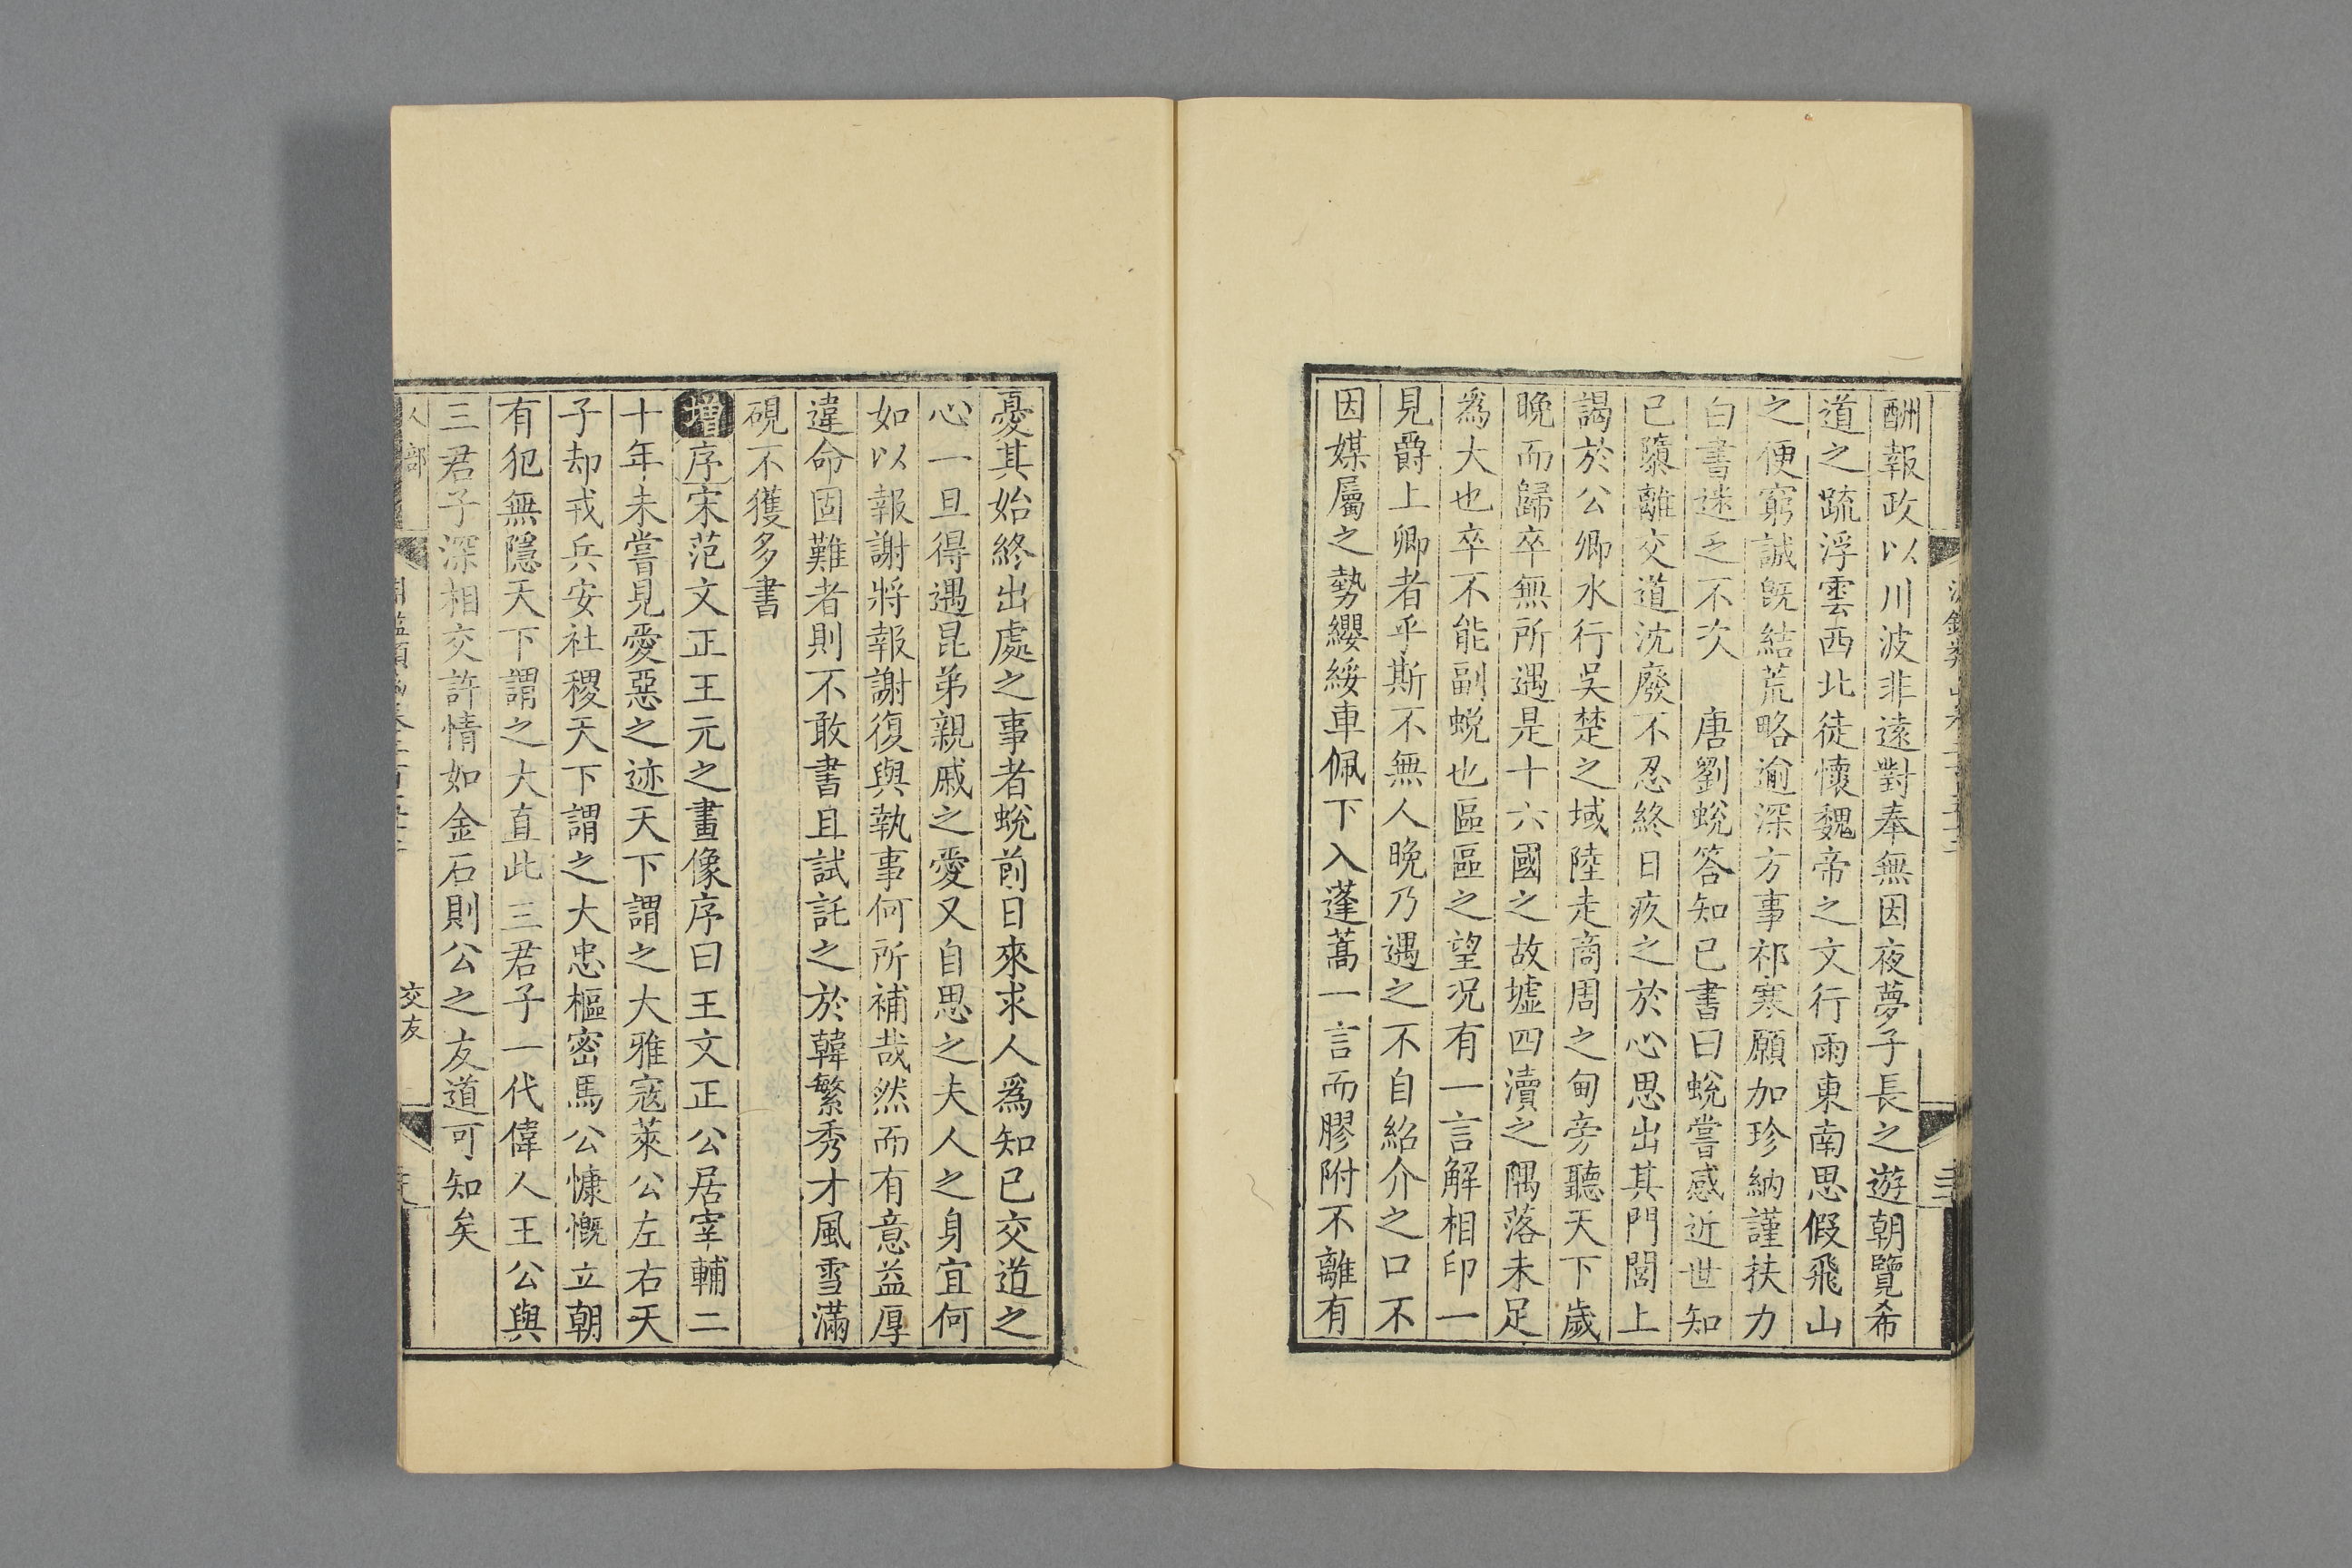 酬報政以川波非遠對奉無因夜夢子長之遊朝覽希
道之䟽浮雲西北徒懷魏帝之文行雨東南思假飛山
之便窮誠旣結荒略逾深方事祁寒願加珍納謹扶力
白書迷乏不次 唐劉蛻答知已書曰蛻嘗感近世知
已隳離交道沈廢不忍終日疚之於心思出其門閭上
謁於公卿水行吳楚之域陸走商周之甸旁聽天下歲
晚而歸卒無所遇是十六國之故墟四瀆之隅落未足
爲大也卒不能副蛻也區區之望況有一言解相印一
見爵上卿者乎斯不無人晚乃遇之不自紹介之口不
因媒屬之勢纓綏車佩下入蓬蒿一言而膠附不離有
憂其始終出處之事者蛻前日來求人爲知已交道之
心一旦得遇昆弟親戚之愛又自思之夫人之身宜何
如以報謝將報謝復與執事何所補哉然而有意益厚
違命固難者則不敢書且試託之於韓繁秀才風雪滿
硯不獲多書
增序宋范文正王元之畫像序曰王文正公居宰輔二
十年未嘗見愛惡之迹天下謂之大雅寇萊公左右天
子却戎兵安社稷天下謂之大忠樞密馬公慷慨立朝
有犯無隱天下謂之大直此三君子一代偉人王公與
三君子深相交許情如金石則公之友道可知矣
人部
交友